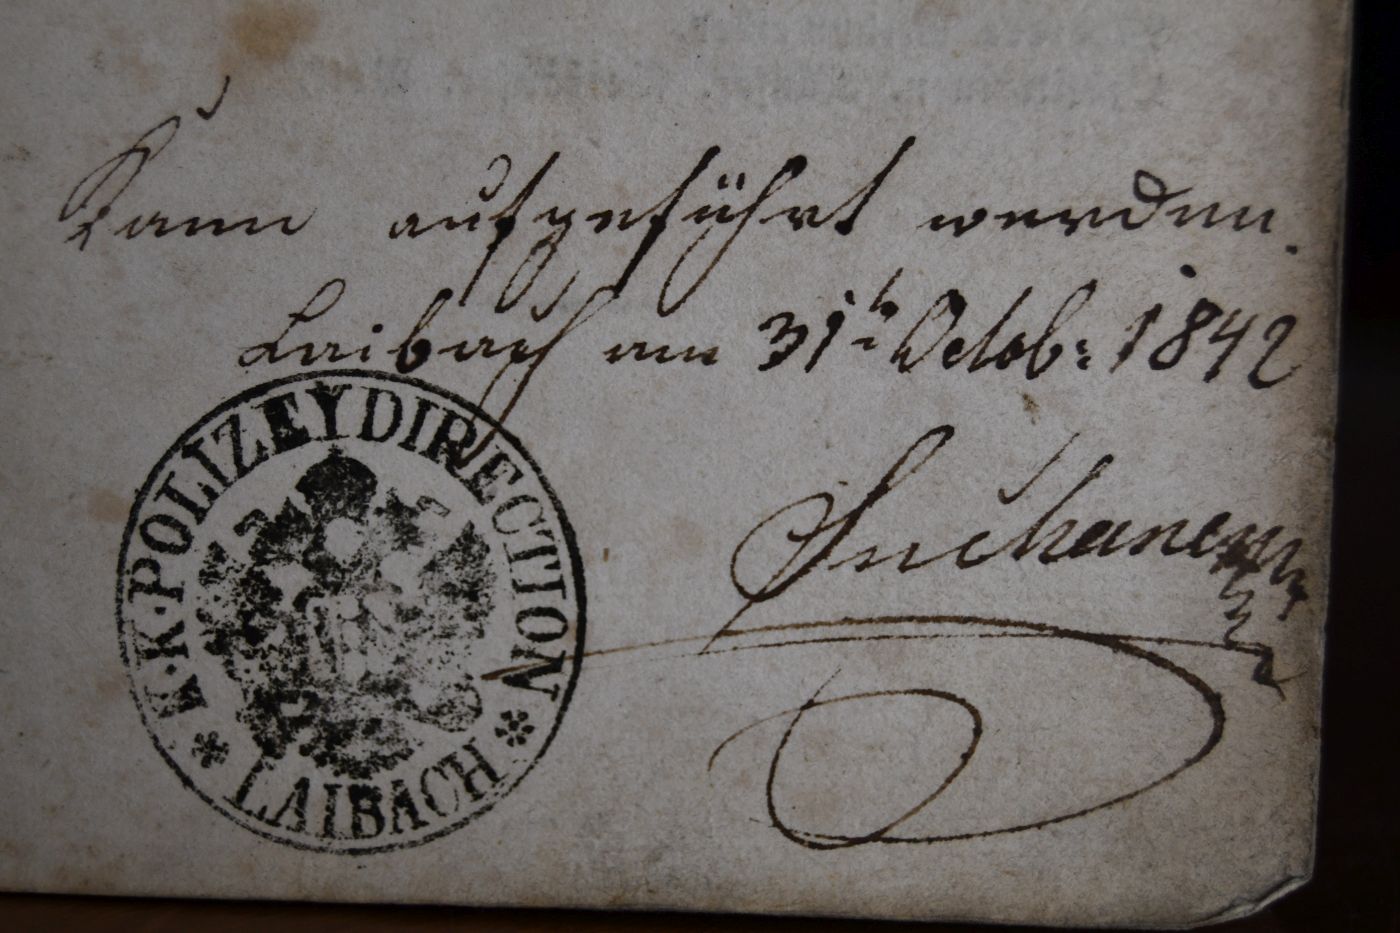 Kann aufgeführt werden.
Laibach am 31t Octob: 1842
K. K. POLIZEY DIRECTION
* LAIBACH *